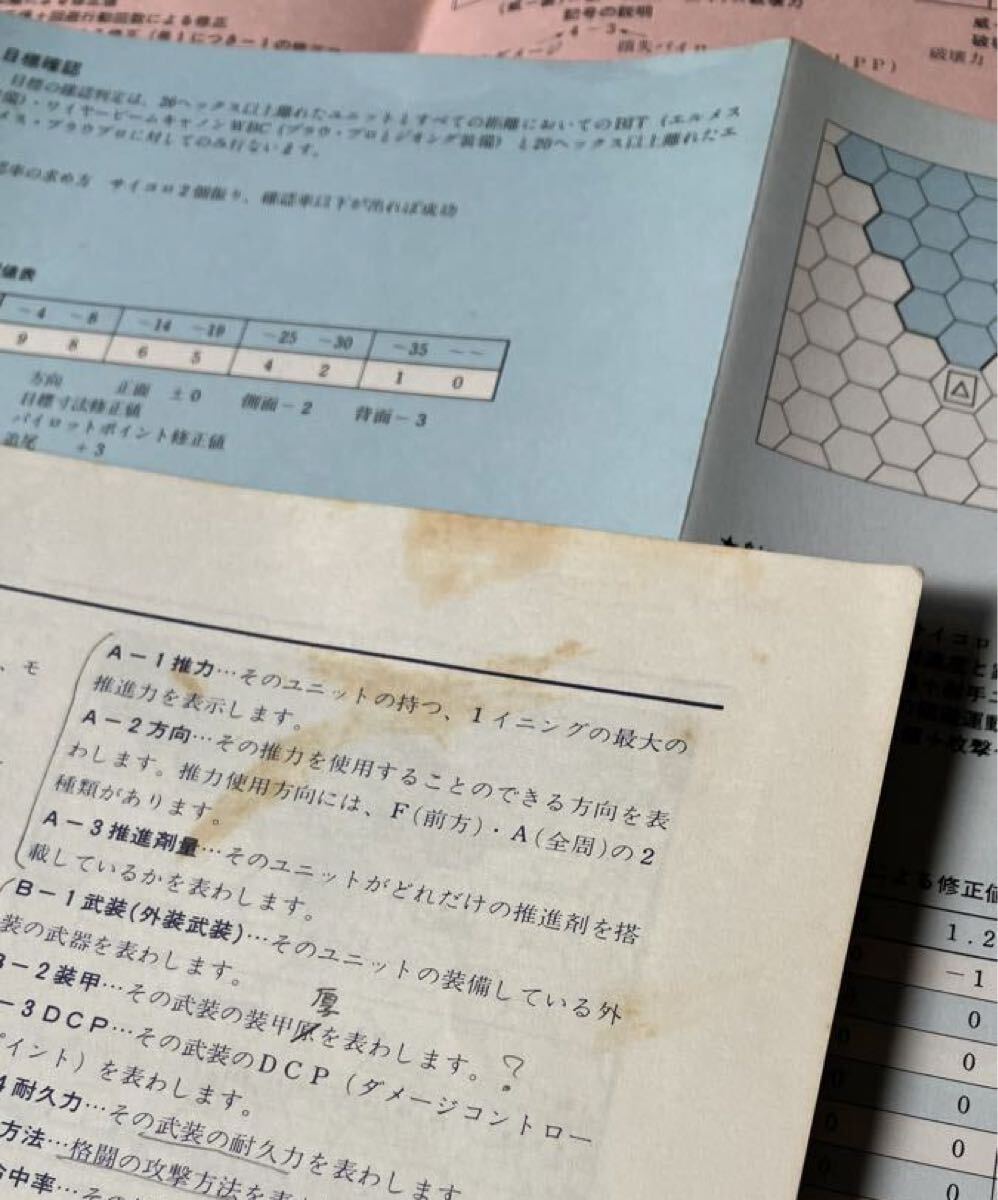 記号の説明
4-3
破壊力
目標確認
目標の確認判定は、20ヘックス以上離れたユニットとすべての距離においてのBIT(エルメス
備)・ワイヤービームキャノンWBC(ブラウ・ブロとジオング装備)と20ヘックス以上離れたエ
メス・ブラウブロに対してのみ行ないます。
率の求め方 サイコロ2個振り、確認率以下が出れば成功
値表
-4 -8 -14 -19 -25 -30 -35 -~
9 8 6 5 4 2 1 0
方向 正面 ±0 側面-2 背面-3
目標寸法修正値
パイロットポイント修正値
追尾 +3
、モ
A-1推力…そのユニットの持つ、1イニングの最大の
推進力を表示します。
A-2方向…その推力を使用することのできる方向を表
わします。推力使用方向には、F(前方)・A(全周)の2
種類があります。
A-3推進剤量…そのユニットがどれだけの推進剤を搭
載しているかを表わします。
B-1武装(外装武装)…そのユニットの装備している外
装の武器を表わします。
B-2装甲…その武装の装甲原を表わします。?
厚
-3DCP…その武装のDCP(ダメージコントロー
ポイント)を表わします。
4耐久力…その武装の耐久力を表わします。
方法…格闘の攻撃方法を表
命中率…その
イコロ
よる修正値
1.2
-1
0
0
0
0
0
0